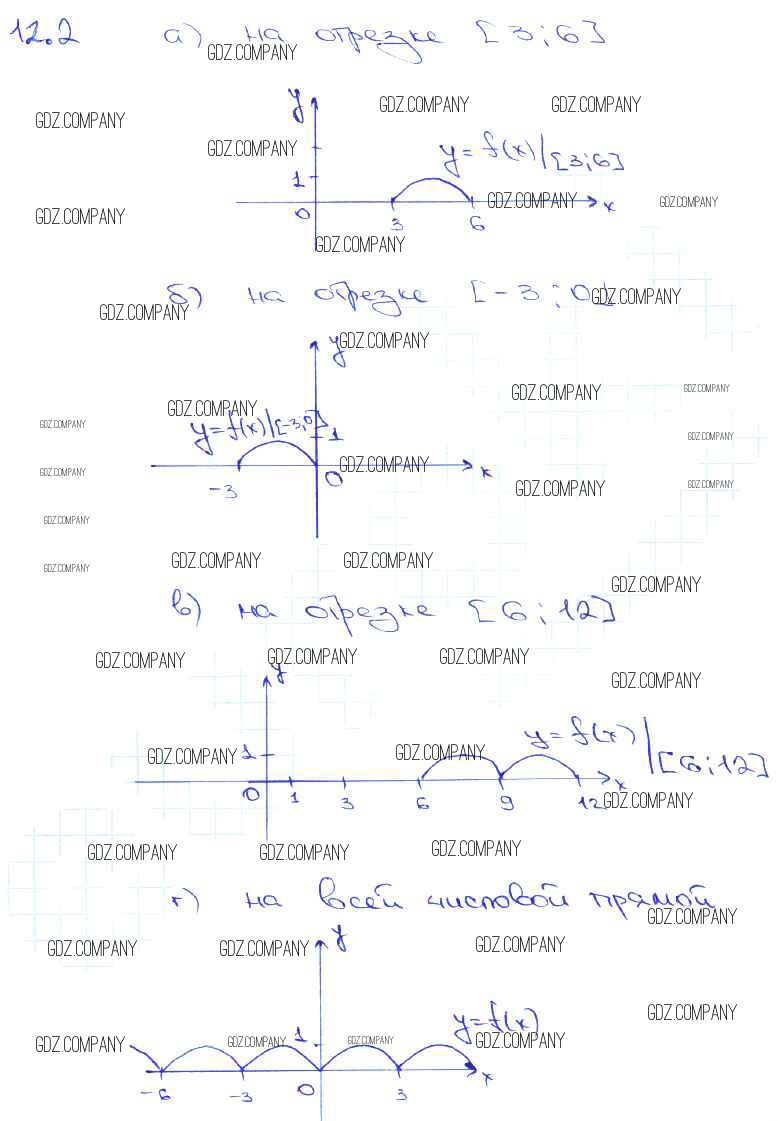 12.2 а) на отрезке [3;6]
GDZ.COMPANY
y GDZ.COMPANY GDZ.COMPANY
GDZ.COMPANY
GDZ.COMPANY y=f(x)|[3;6]
1
GDZ.COMPANY GDZ.COMPANY
GDZ.COMPANY 0 3 6 x
GDZ.COMPANY
б) на отрезке [-3;0]
GDZ.COMPANY
GDZ.COMPANY
y GDZ.COMPANY
GDZ.COMPANY GDZ.COMPANY
GDZ.COMPANY
GDZ.COMPANY y=f(x)|[-3;0] 1
GDZ.COMPANY
GDZ.COMPANY GDZ.COMPANY x
-3 0 GDZ.COMPANY GDZ.COMPANY
GDZ.COMPANY
GDZ.COMPANY GDZ.COMPANY GDZ.COMPANY
GDZ.COMPANY
в) на отрезке [6;12]
GDZ.COMPANY GDZ.COMPANY GDZ.COMPANY
y GDZ.COMPANY
1 y=f(x)|[6;12]
GDZ.COMPANY GDZ.COMPANY
0 1 3 6 9 12 x
GDZ.COMPANY
GDZ.COMPANY GDZ.COMPANY GDZ.COMPANY
г) на всей числовой прямой
GDZ.COMPANY
GDZ.COMPANY GDZ.COMPANY y GDZ.COMPANY
GDZ.COMPANY
1 y=f(x)
GDZ.COMPANY GDZ.COMPANY GDZ.COMPANY GDZ.COMPANY
-6 -3 0 3 x